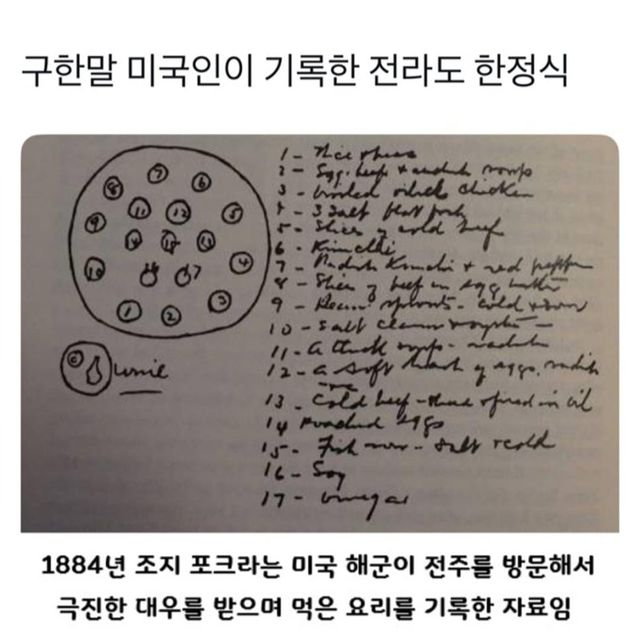 구한말 미국인이 기록한 전라도 한정식
1 - Rice
2 - Egg, beef & radish soup
3 - broiled chicken
4 - 3 salt
5 - Slices of cold beef
6 - Kimchi
7 - Radish Kimchi & red pepper
8 - Slices of beef in egg batter
9 - Bean sprouts - cold & sour
10 - Salt clams & oysters -
11 - A thick soup - radish
12 - a soft hash of eggs, radish
13 - Cold beef - fried in oil
14 Poached eggs
15 - Fish - salt & cold
16 - Soy
17 - Vinegar
8
7
6
9
11
12
5
14
15
13
10
16
17
4
1
2
3
wine
1884년 조지 포크라는 미국 해군이 전주를 방문해서
극진한 대우를 받으며 먹은 요리를 기록한 자료임